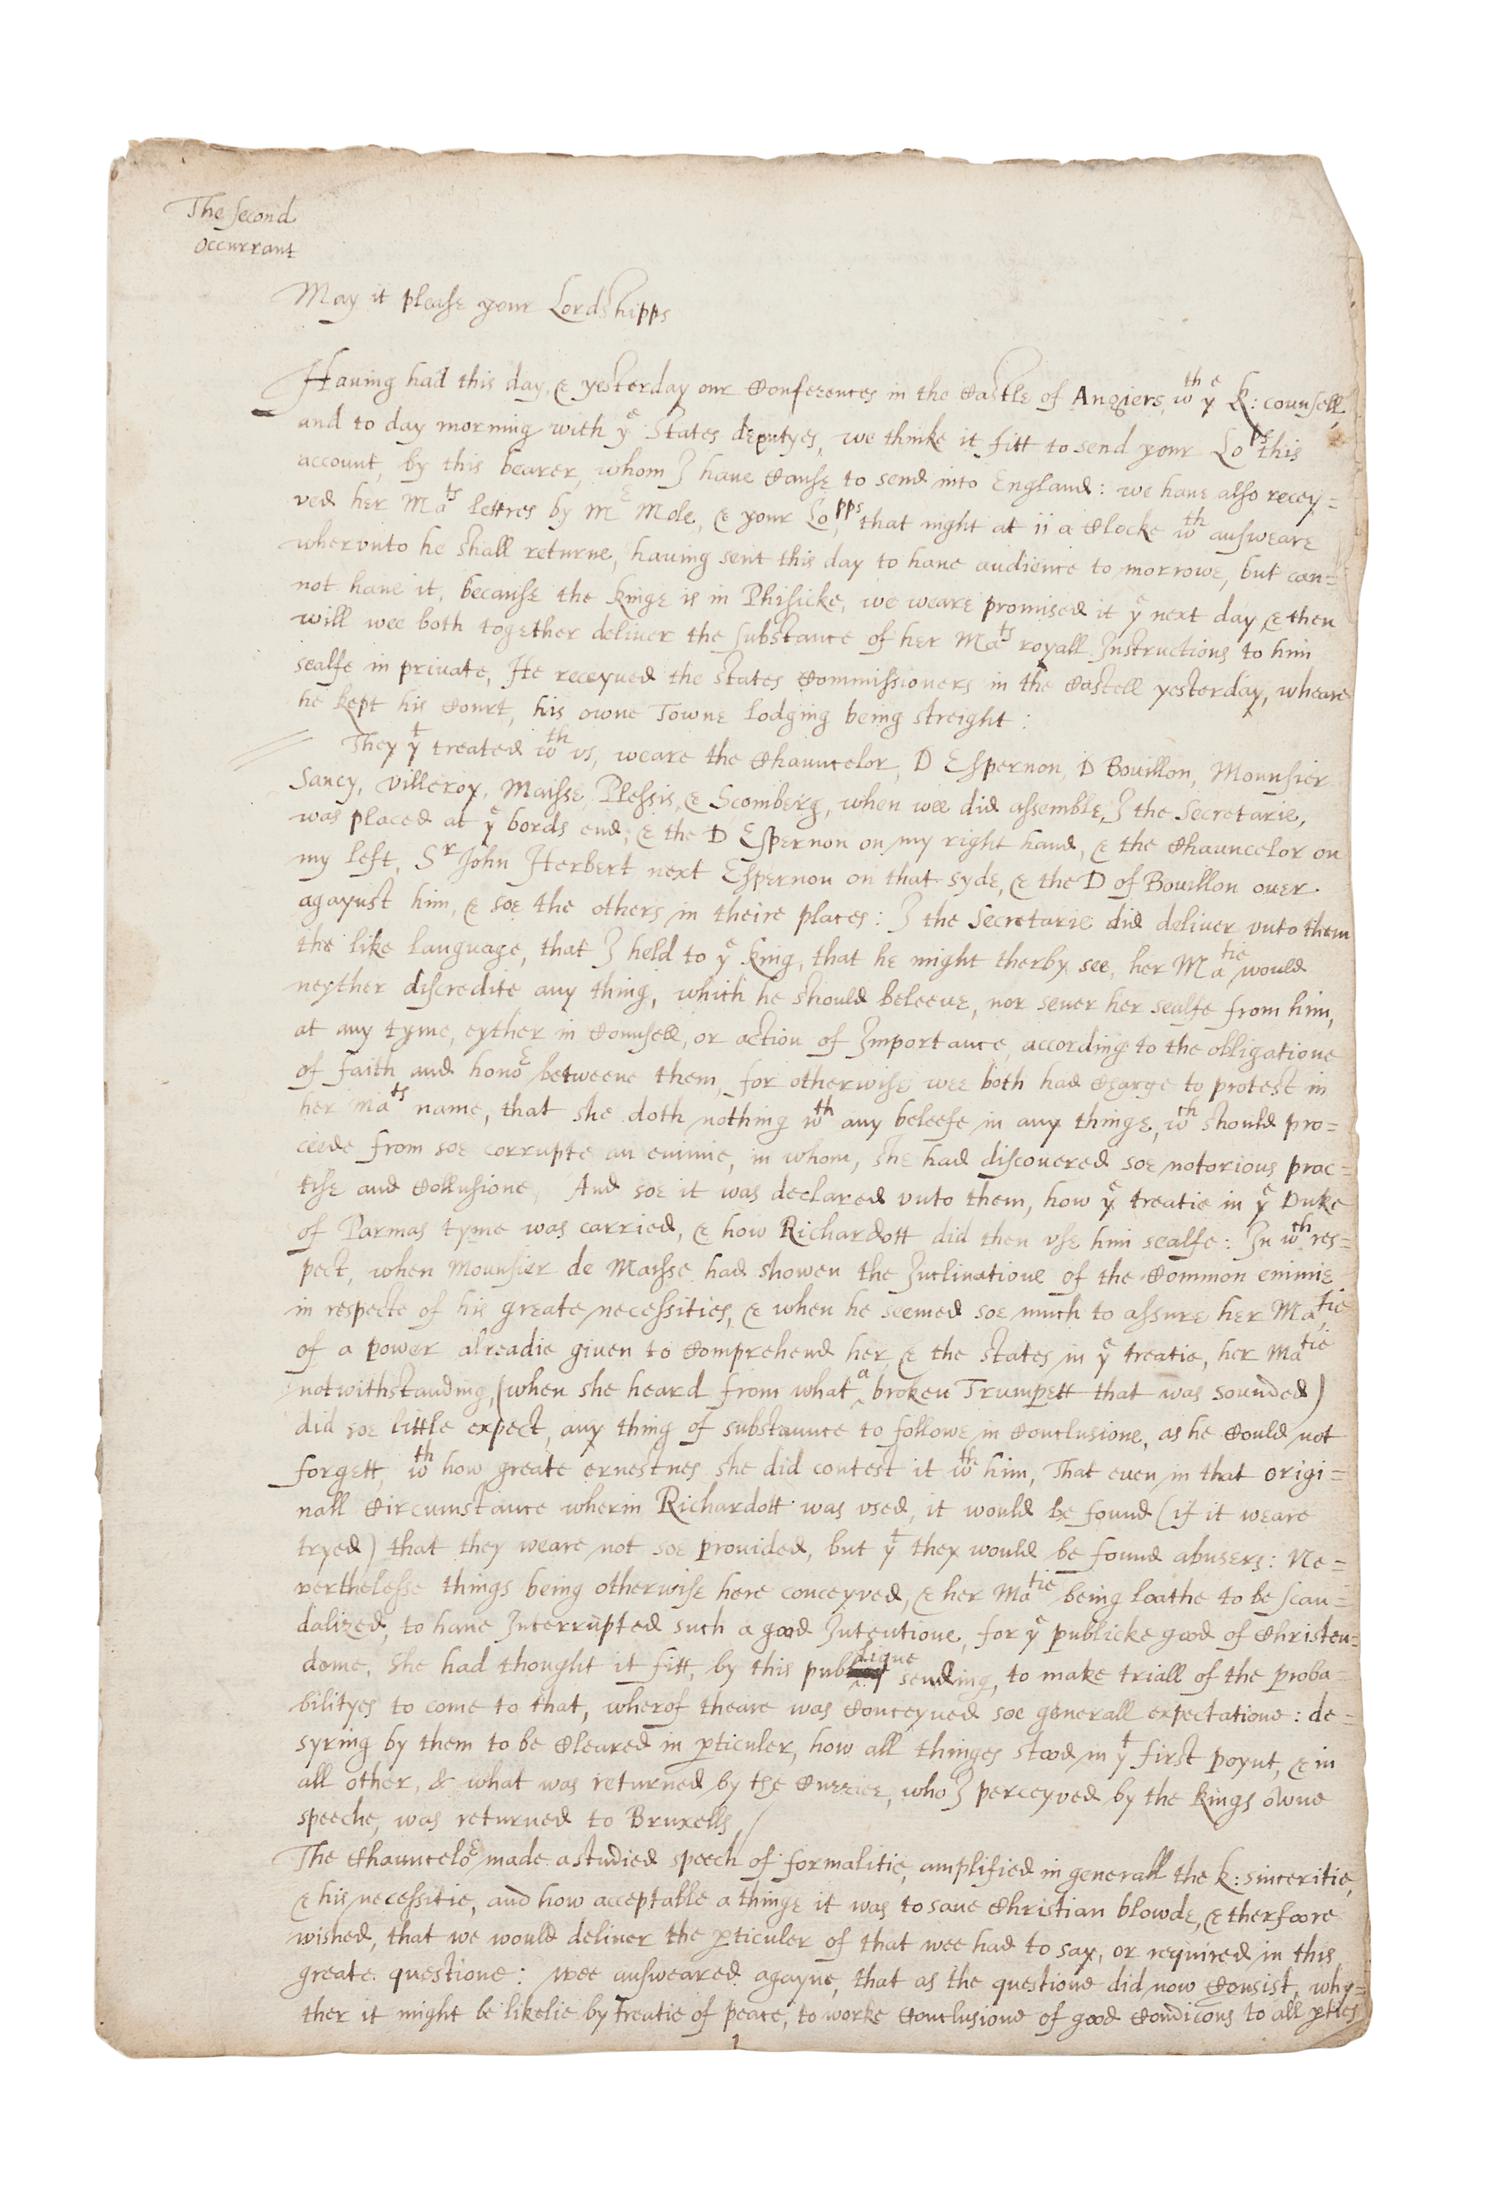 The second
occurrant
May it please your Lordshipps
Having had this day, & yesterday our Conferences in the Castle of Angiers, wth ye K: counsell,
and to day morning with ye States deputyes, we thinke it fitt to send your Lops this
account, by this bearer, whom I haue Cause to send into England: we haue also recey=
ved her Mats lettres by Mr Mole, & your Lopps, that night at ii a Clocke wth answeare
whervnto he shall returne, having sent this day to haue audience to morrowe, but can=
not haue it, because the kinge is in Phisicke, we weare promised it ye next day, & then
will wee both together deliver the substance of her Mats royall Instructions to him
sealfe in private, He receyued the states Commissioners in the Castell yesterday, wheare
he kept his Court, his owne Towne lodging being streight:
They yt treated wth vs, weare the Chauncelor, D Espernon, D Bouillon, Mounsier
Sancy, Villeroy, Maisse, Plessis, & Scomberg, when wee did assemble, I the Secretarie,
was placed at ye bords end, & the D Espernon on my right hand, & the Chauncelor on
my left, Sr John Herbert next Espernon on that syde, & the D of Bouillon ouer
agaynst him, & soe the others in theire places: I the Secretarie did deliver vnto them
the like language, that I held to ye king, that he might therby see, her Matie would
neyther discredite any thing, which he should beleeue, nor sever her sealfe from him,
at any tyme, eyther in Counsell, or action of Importance, according to the obligatione
of faith and honor betweene them, for otherwise wee both had Charge to protest in
her Mats name, that she doth nothing wth any beleefe in any thinge, wch should pro=
ceede from soe corrupte an enimie, in whom, she had discouered soe notorious prac=
tise and Collusione, And soe it was declared vnto them, how ye treatie in ye Duke
of Parmas tyme was carried, & how Richardott did then vse him sealfe: In wch res=
pect, when Mounsier de Maisse had showen the Inclinatione of the Common enimie
in respecte of his greate necessities, & when he seemed soe much to assure her Matie
of a power alreadie given to Comprehend her, & the states in ye treatie, her Matie
notwithstanding, (when she heard from what a broken Trumpett that was sounded)
did soe little expect, any thing of substaunce to followe in Conclusione, as he Could not
forgett, wth how greate ernestnes she did contest it wth him, That even in that origi=
nall Circumstance wherin Richardott was vsed, it would be found (if it weare
tryed) that they weare not soe provided, but yt they would be found abusers: Ne=
verthelesse things being otherwise here conceyved, & her Matie being loathe to be scan=
dalized, to haue Interrupted such a good Intentione, for ye publicke good of Christen=
dome, She had thought it fitt, by this publique sending, to make triall of the proba=
bilityes to come to that, wherof theare was Conceyued soe generall expectatione: de=
syring by them to be Cleared in pticuler, how all thinges stood in yt first poynt, & in
all other, & what was returned by the Currier, who I perceyved by the kings owne
speeche, was returned to Bruxells /
The Chauncelor made a studied speech of formalitie, amplified in generall the k: sinceritie,
& his necessitie, and how acceptable a thinge it was to saue Christian blowde, & therfoore
wished, that we would deliver the pticuler of that wee had to say, or required in this
greate questione: wee answeared agayne, that as the questione did now Consist, why=
ther it might be likelie by treatie of peace, to worke Conclusione of good Condicons to all pties
1